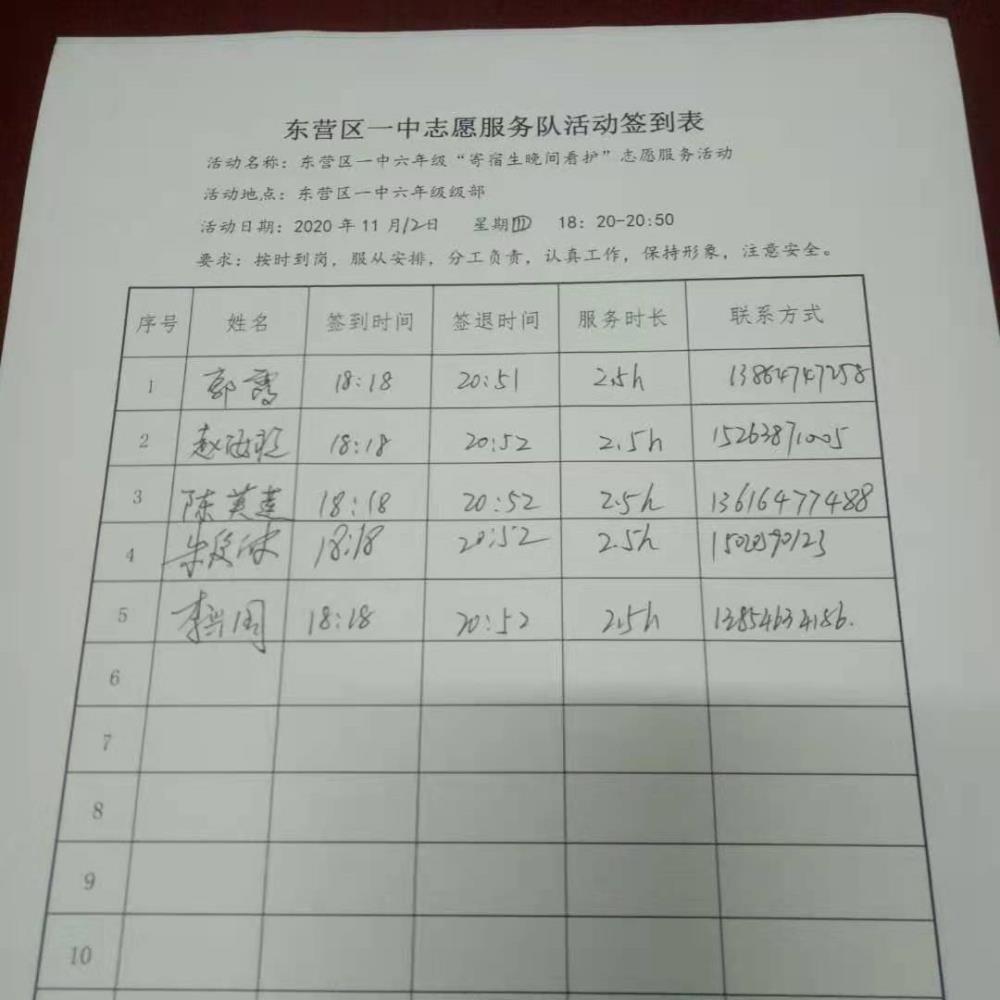 东营区一中志愿服务队活动签到表
活动名称：东营区一中六年级“寄宿生晚间看护”志愿服务活动
活动地点：东营区一中六年级级部
活动日期：2020年11月12日 星期四 18：20-20:50
要求：按时到岗，服从安排，分工负责，认真工作，保持形象，注意安全。
序号 姓名 签到时间 签退时间 服务时长 联系方式
1 郭霞 18:18 20:51 2.5h 13864747258
2 赵 18:18 20:52 2.5h 15263871005
3 陈美莲 18:18 20:52 2.5h 13616477488
4 朱 18:18 20:52 2.5h
5 李兴周 18:18 20:52 2.5h 13854634186.
6
7
8
9
10